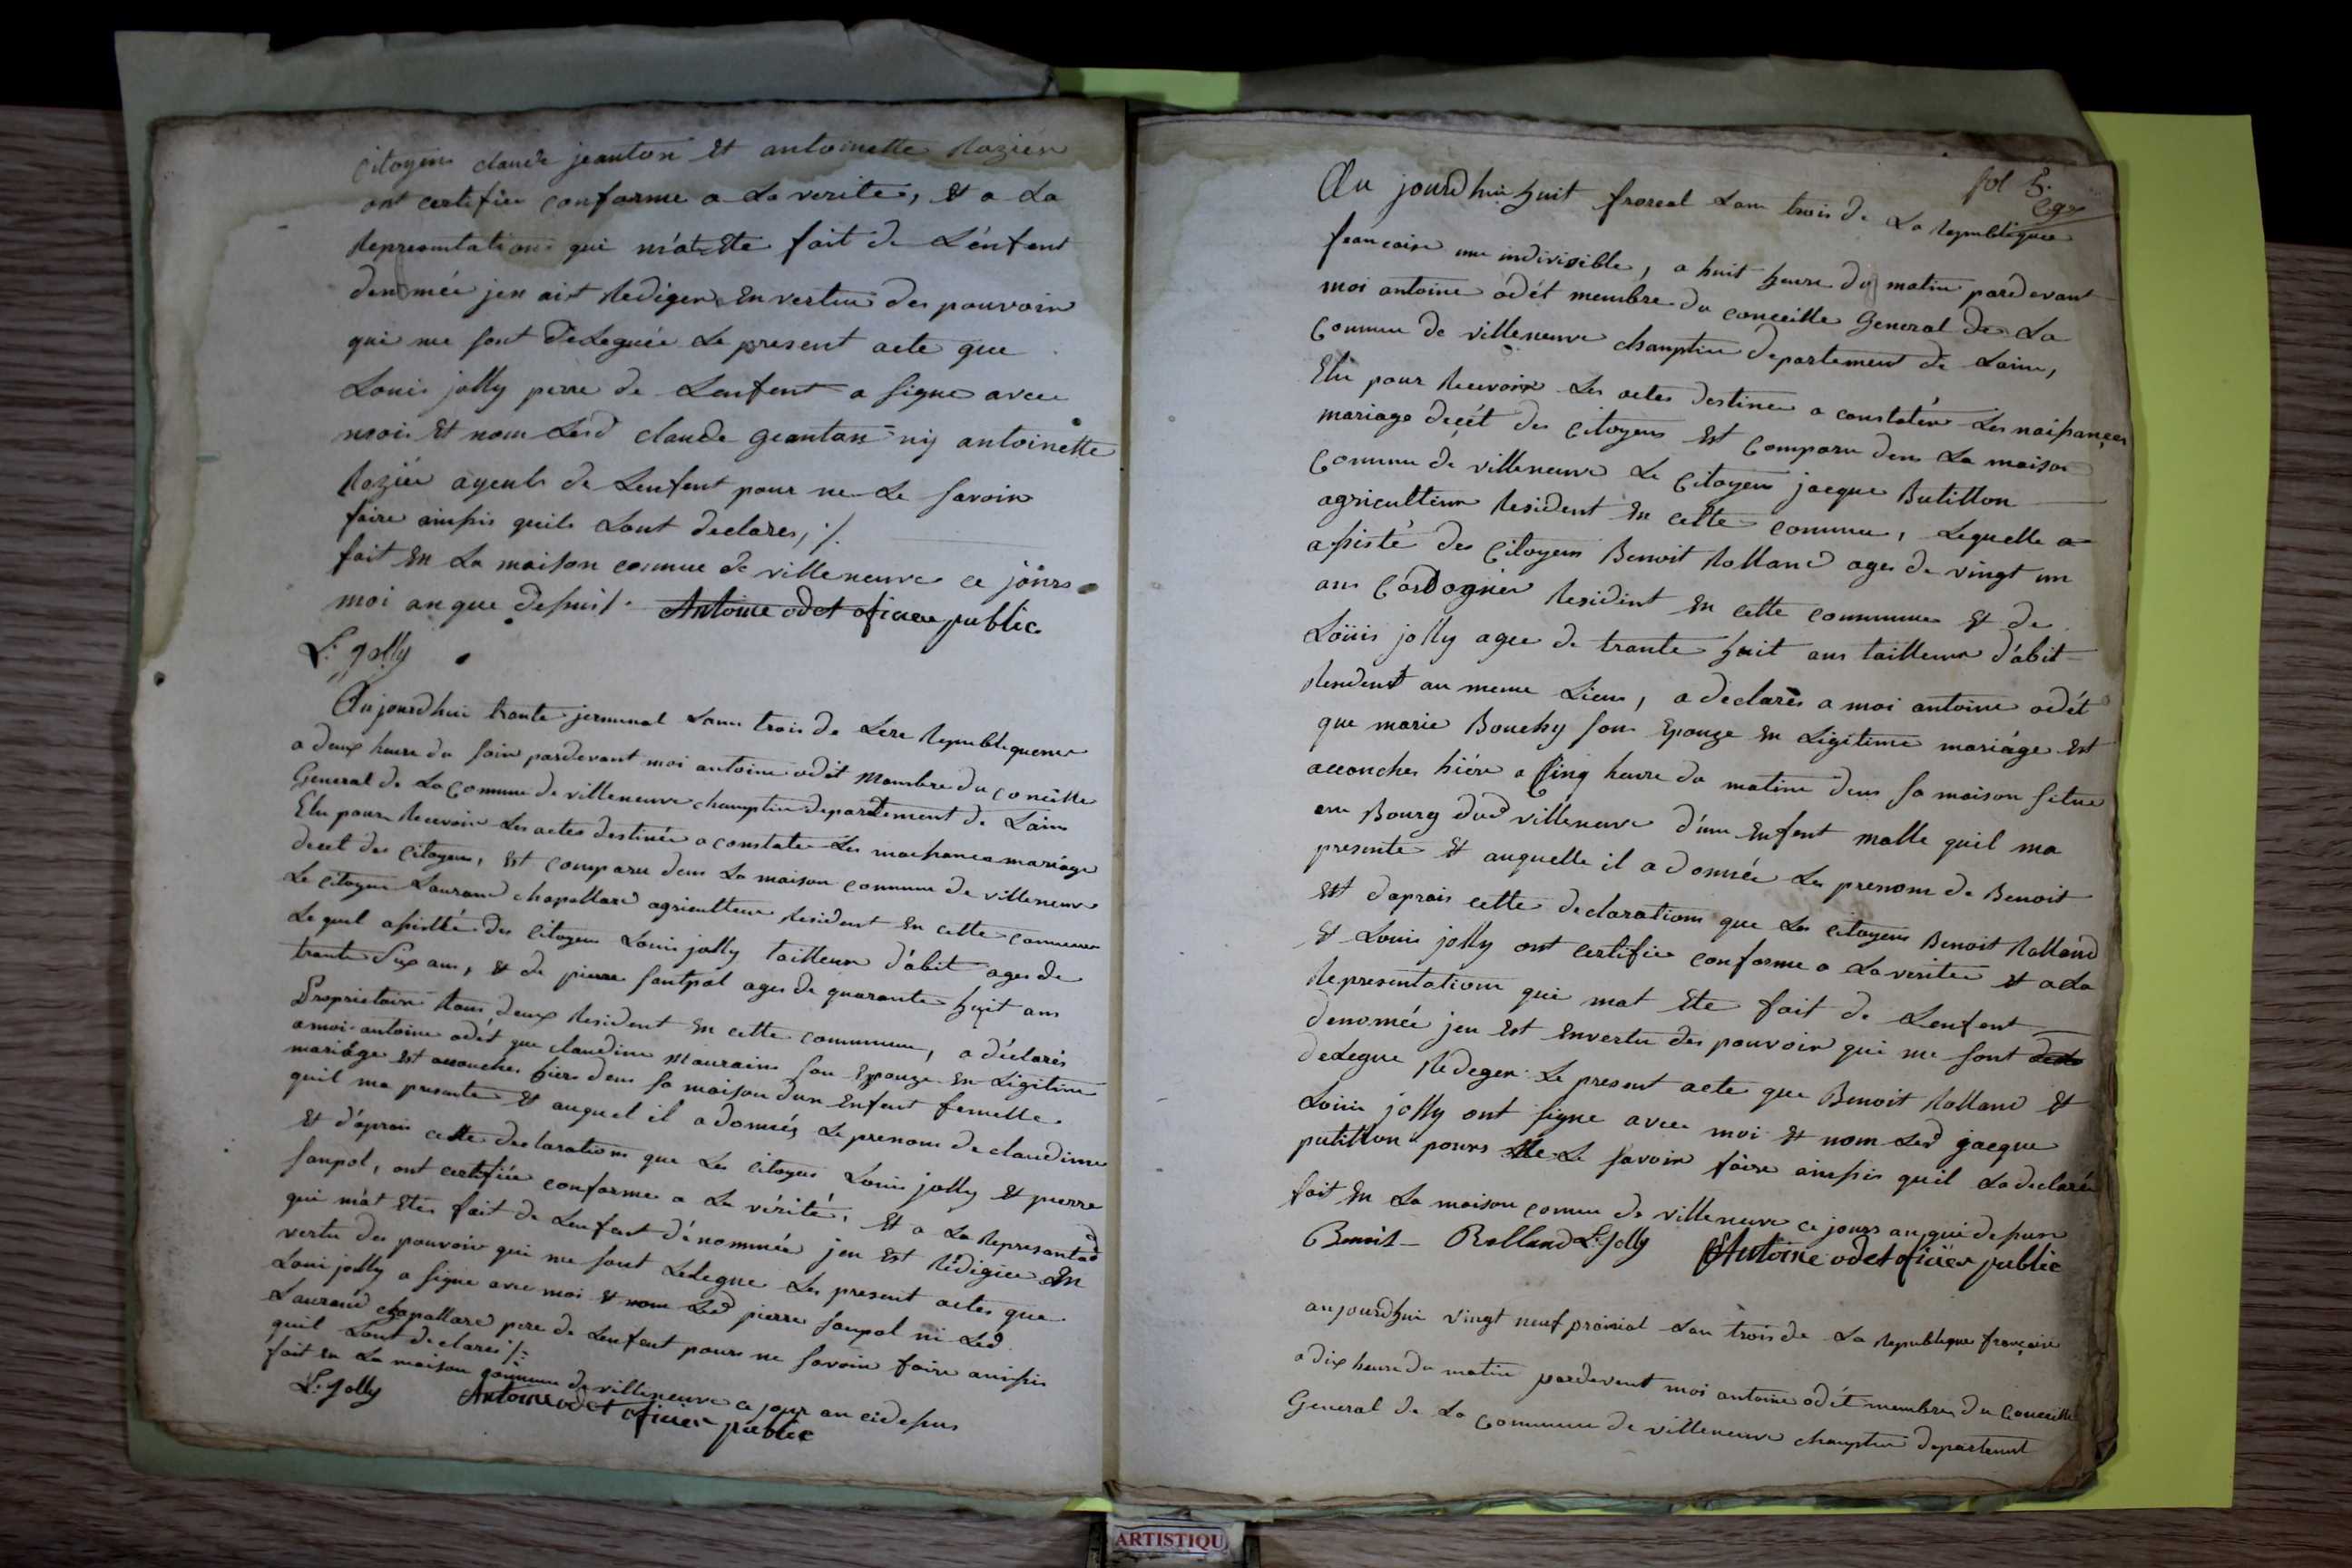 Citoyens claude jeanton Et antoinette Rozier
ont certifier conforme a La verite, Et a La
Representation qui m'at Ete fait de L'énfent
denomée jen ait Rediger En vertue des pouvoir
qui me sont déleguée Le present acte que
Louis jolly perre de Lenfent a signe avec
mois Et nom Led claude geantan ny antoinette
Roziér ayeuls de Lenfent pour ne Le savoir
faire ainssis quils Lont declares, ./.
fait En La maison comune de villeneuve ce jours
moi an que desus ./. Antoine odet oficier public
L: golly
Aujourdhui trante jerminal Lanne trois de Lere Republiquenne
a deux heure du soir pardevant moi antoine odét Mambre du conceille
General de La Comune de villeneuve champtier departement de Lain
Elu pour Recevoir Les actes destinée a constater Les naissance mariage
decet des Citoyens, Est comparu dens La maison comune de villeneuve
Le citoyen Laurand chapellard agriculteur Resident En cette commune
Le quel assistté des Citoyens Louis jolly tailleur d'abit ages de
trante six ans, Et de pierre santpol ages de quarante huit ans
Proprietaire tous deux Resident En cette commune, a déclarés
a moi antoine odét que claudine Maurain son Epouze En Ligitime
mariàge Est acouches hiere dens sa maison dun Enfent femelle
quil ma presente Et auquel il a donnés Le prenom de claudine
Et d'aprais cette declaration que Les Citoyens Louis jolly Et pierre
sanpol, ont certifiée conforme a La vérité, Et a La Representad
qui m'at Etes fait de Lenfent dénommée jen Est Rédigiée En
vertu des pouvoir qui me sont Delegue Les present actes que
Loui jolly a signe avec moi Et nom Led pierre sanpol ni Led
Laurand chapallard pere de Lenfent pours ne savoir faire ainssis
quil Lont declares ./.
fait En La maison commune de villeneuve ce jour an cidesus
L: Jolly Antoine odet oficier public
fol 5.
Au jourdhui huit froreal Lan trois de La Republique
francaise une indivisible, a huit heure du matin pardevant
moi antoine odét membre du conceille General de La
Comune de villeneuve champtier departement de Lain,
Elu pour Recevoir Les actes destinee a constatér Les naissances
mariage decét des Citoyens Est Comparu dens La maison
Comune de villeneuve Le Citoyen jacque Butillon
agriculteur Resident En cette commune, Lequelle a
assisté des Citoyens Benoit Rolland ages de vingt un
ans Cordognier Resident En cette commune Et de
Loüis jolly agee de trante huit ans tailleur d'abit
Resident au meme Lieux, a declarès a moi antoine odét
que marie Bouchy son Epouze En Ligitime mariàge Est
acouches hiére a Cinq heure du matin dens sa maison situe
au Bourg dud villeneuve d'un Enfent malle quil ma
presente Et auquelle il a donnée Le prenom de Benoit
Est daprais cette declaration que Les Citoyens Benoit Rolland
Et Louis jolly ont certifier conforme a La verite Et a La
Representation qui mat Ete fait de Lenfent
denomée jen Est Envertu des pouvoir qui me sont
delegue Redeger Le present acte que Benoit Rolland Et
Louis jolly ont signe avec moi Et nom Led jacque
putillon pours Ne Le savoir faire ainssis quil La declarée
fait En La maison comune de villeneuve ce jours an qui desus
Benoit Rolland L: Jolly Antoine odet oficier public
aujourdhui vingt neuf prairial Lan trois de La Republique françaisé
a dix heure du matin pardevent moi antoine odét membre du Conceille
General de La Commune de villeneuve champtier departement
ARTISTIQU